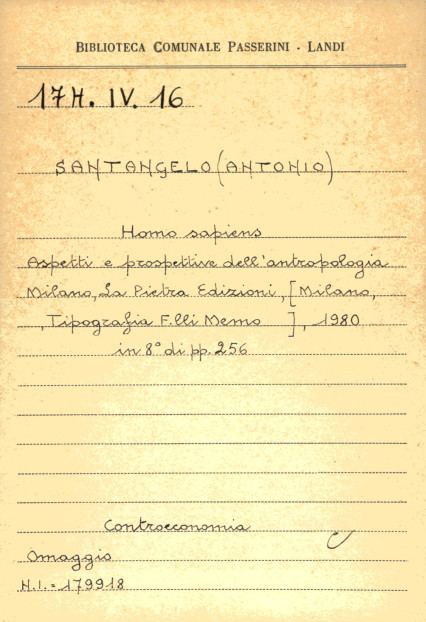 BIBLIOTECA COMUNALE PASSERINI - LANDI
17H. IV. 16
SANTANGELO (ANTONIO)
Homo sapiens
Aspetti e prospettive dell'antropologia
Milano, La Pietra Edizioni, [Milano,
Tipografia F.lli Memo ], 1980
in 8° di pp. 256
Controeconomia
Omaggio
N.I. = 179918